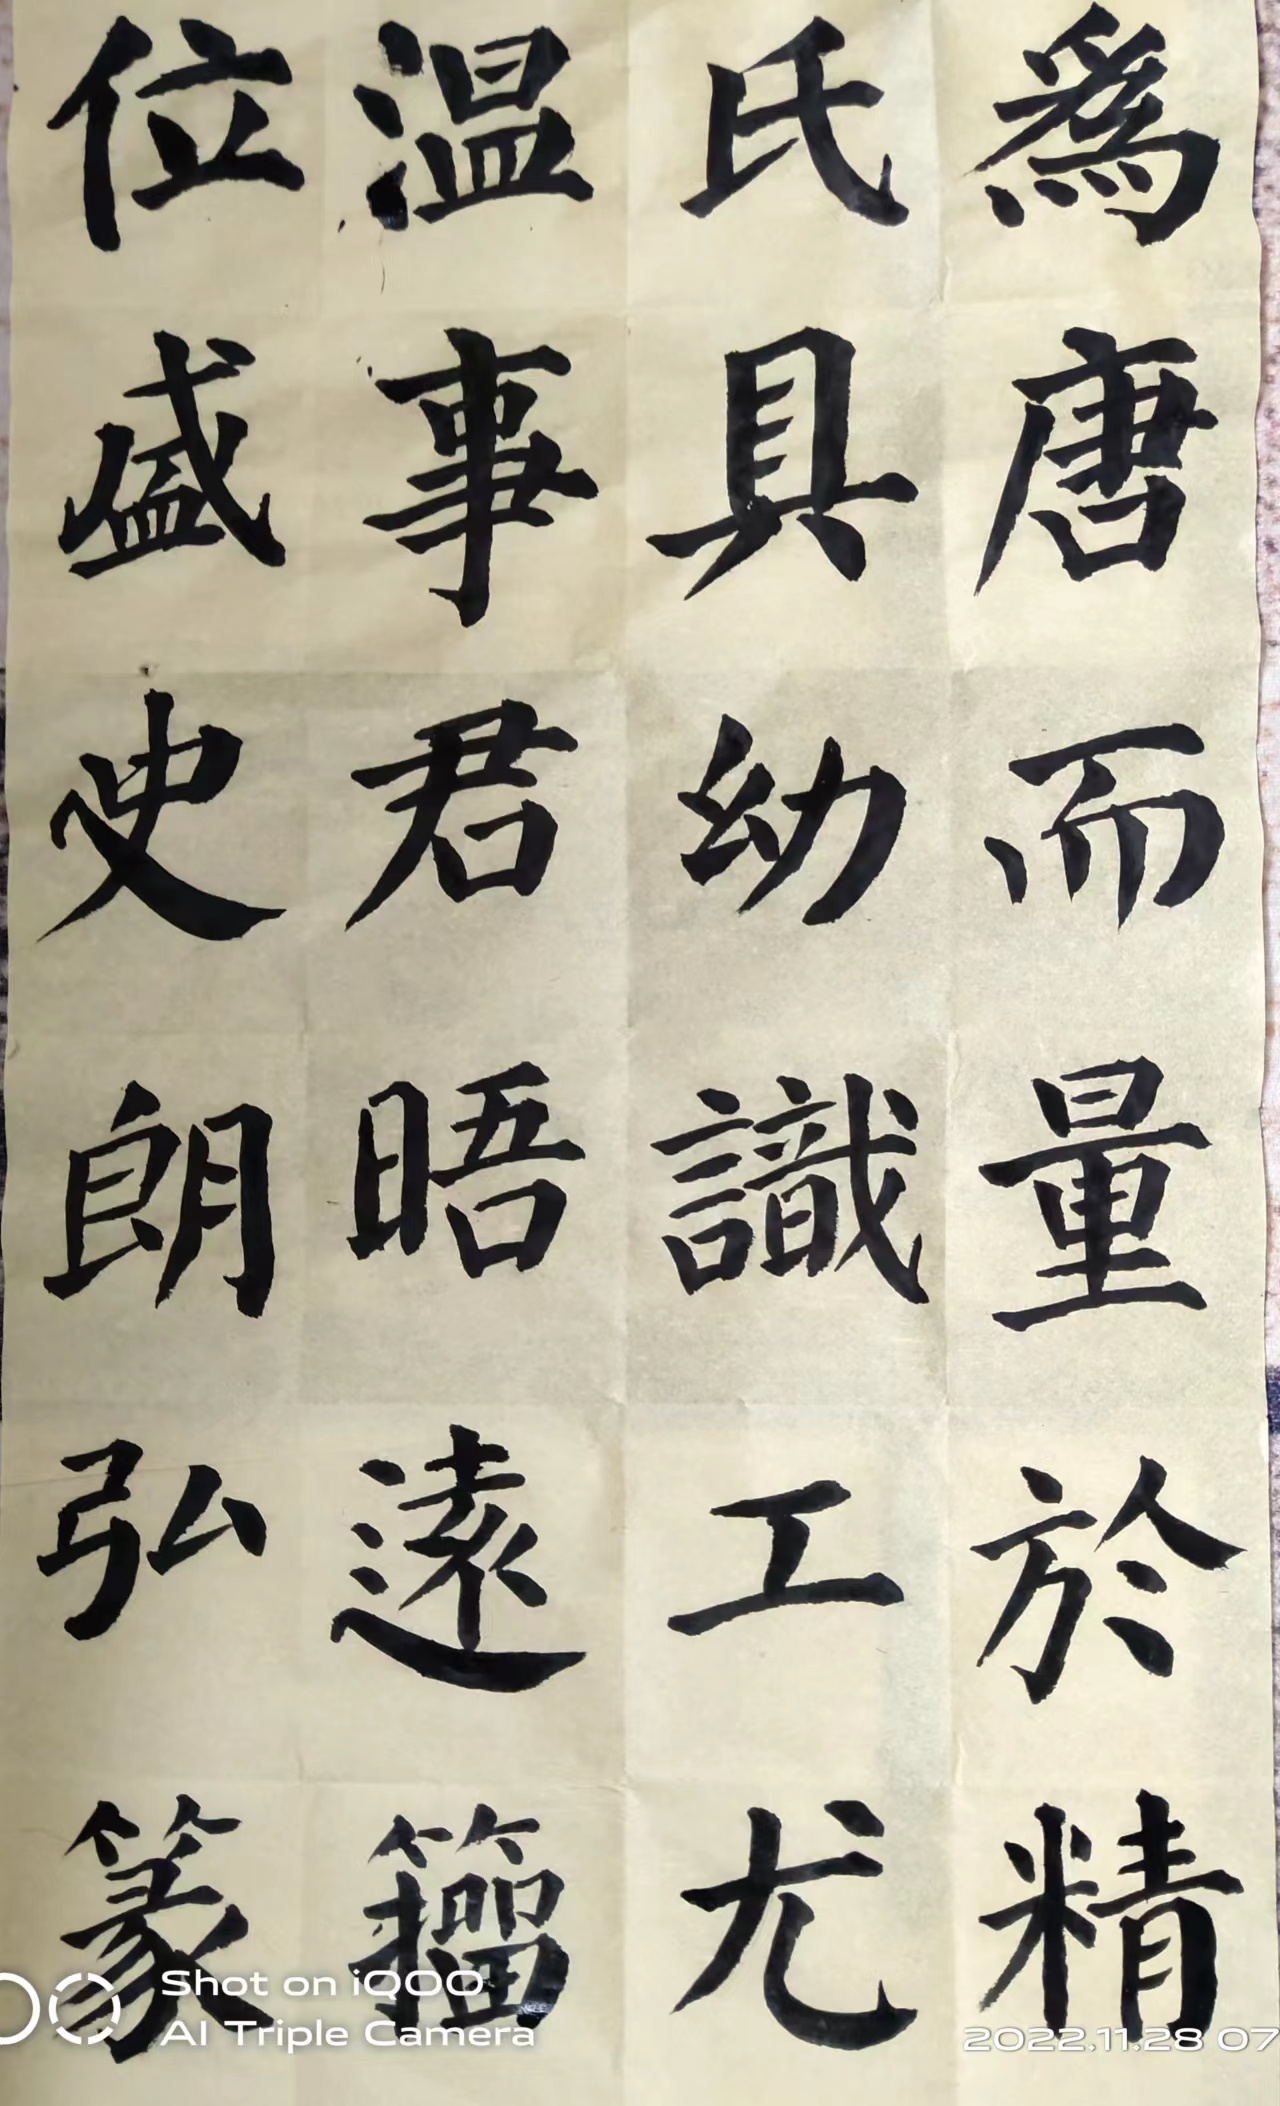 爲唐而量於精
氏具幼識工尤
温事君晤遠籀
位盛史朗弘篆
Shot on iQOO
AI Triple Camera
2022.11.28 07